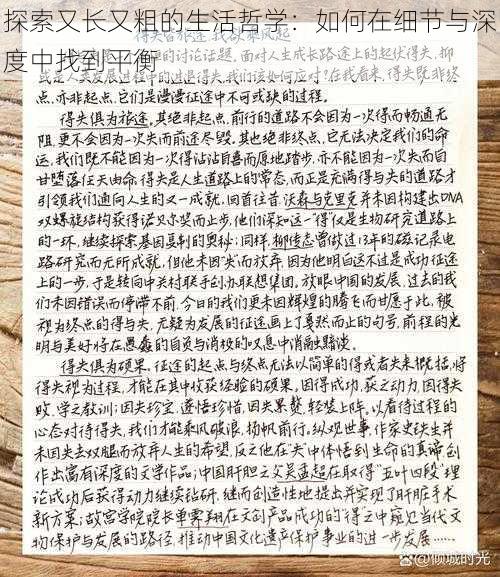 探索又长又粗的生活哲学：如何在细节与深
度中找到平衡
得失皆旅途，我欲乘风起
的讨论话题。面对人生成长路途上的起伏得失，抑
或是人类发展过程中的进退得失，我们该如何应对？在我看来，得失既非终
点，亦非起点，它们是漫漫征途中不可或缺的过程。
得失俱为旅途。其绝非起点，前行的道路不会因为一次得而畅通无
阻，更不会因为一次失而前途尽毁。其也绝非终点，它无法决定我们的命
运，我们既不能因为一次得沾沾自喜而原地踏步，亦不能因为一次失而自
甘堕落任天由命。得失是人生道路上的常态，而正是充满得与失的道路才
引领我们通向人生的又一成就。回首往昔，沃森与克里克并未因构建出DNA
双螺旋结构获得诺贝尔奖而止步，他们深知这一“得”仅是生物研究道路上
的一环，继续探索基因复制的奥秘；同样，柳传志曾做过13年的磁记录电
路研究而无所成就，但他未因“失”而放弃，因为他明白这不过是成功征途
上的一步，于是转向中关村联手创办联想集团。放眼中国的发展，过去的我
们未因错误而停滞不前，今日的我们更未因辉煌的腾飞而甘愿于此，被
视为终点的得与失，无疑为发展的征途画上了戛然而止的句号，前程的光
明与美好将在愚蠢的自负与消极的叹息中消融黯淡。
得失俱为硕果。征途的起点与终点无法以简单的得或者失来概括，将
得失视为过程，才能在其中收获经验的硕果，因得成功，获之动力，因得失
败，学之教训；因失珍宝，遂悟珍惜，因失累赘，轻装上阵。以看待过程的
心态对待得失，我们才能乘风破浪，扬帆前行。纵观世事，作家史铁生并
未因失去双腿而放弃人生的希望，反之他在“失”中体悟到生命的真谛，创
作出富有深度的文学作品；中国肝胆之父吴孟超在取得“五叶四段”理
论成功后获得动力继续钻研，继而创造性地提出并实现了肝脏手术
新方案；故宫学院院长单霁翔在文创产品成功的“得”之中窥见当代文
物保护与发展的路径，推动中国文化遗产保护事业的进一步发展……
@倾城时光